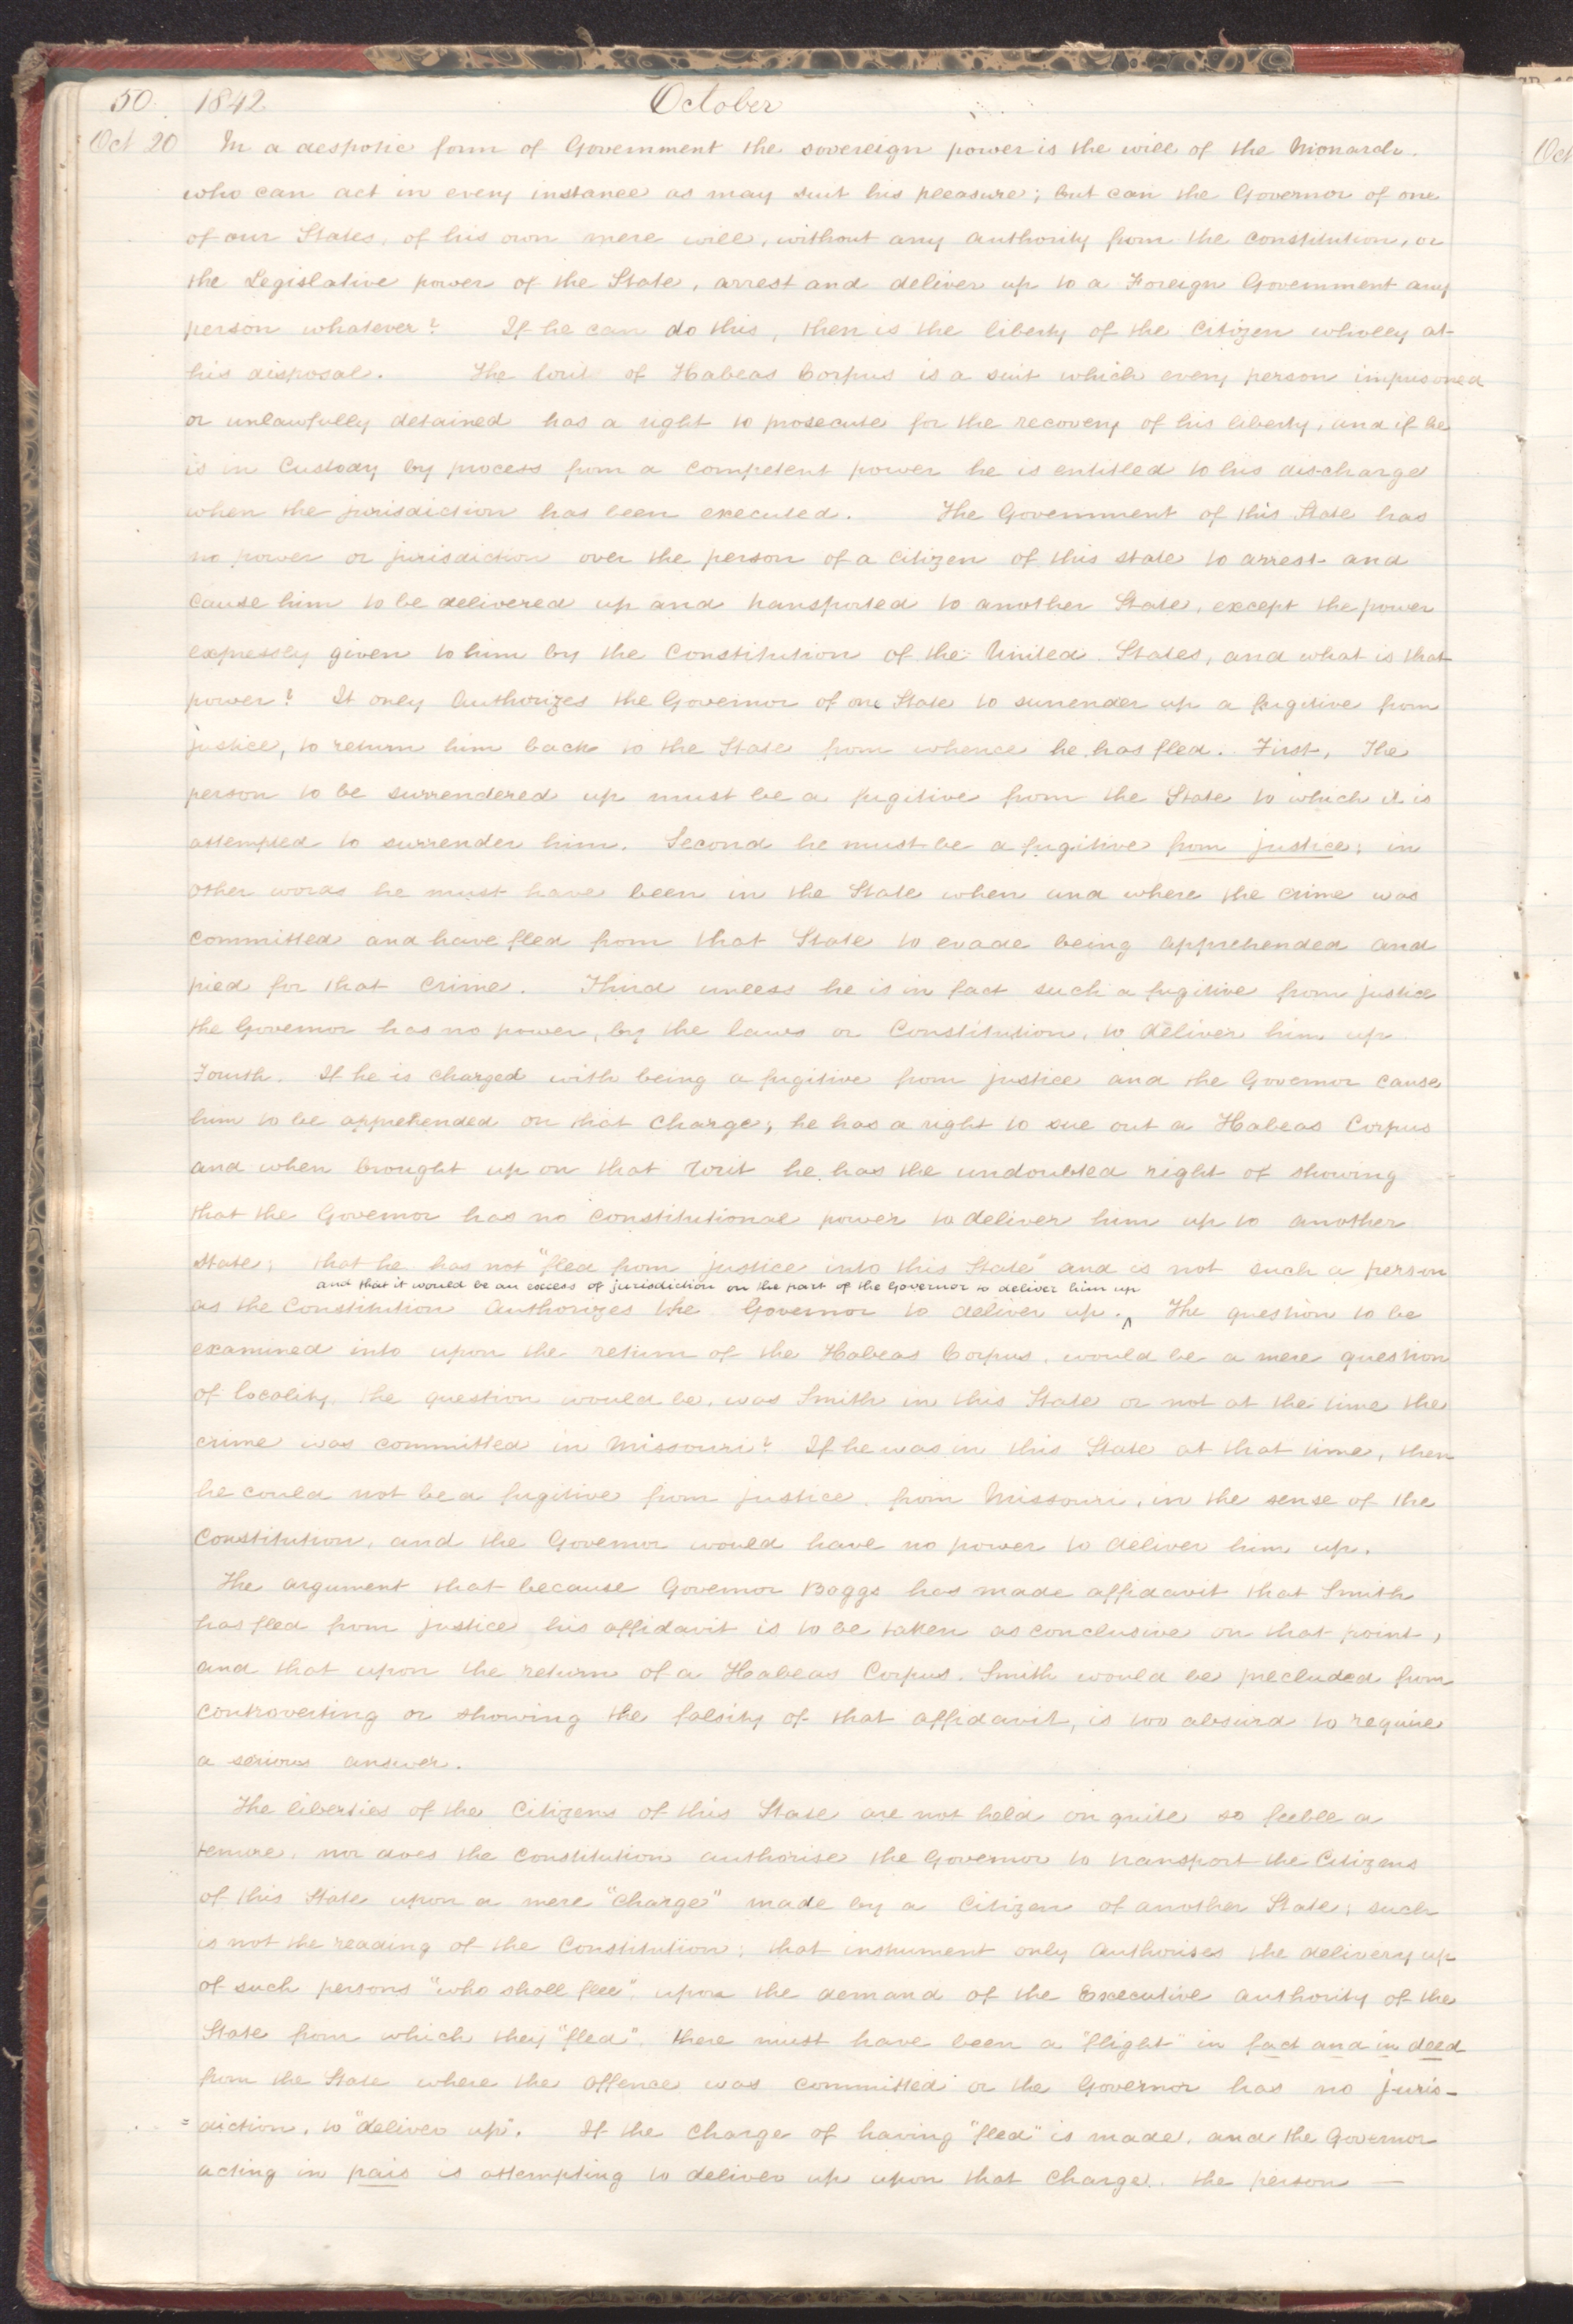 50. 1842 October
Oct 20 In a despotic form of Government the sovereign power is the will of the Monarch.
who can act in every instance as may suit his pleasure; but can the Governor of one
of our States, of his own mere will, without any authority from the constitution, or
the Legislative power of the State, arrest and deliver up to a Foreign Government any
person whatever? If he can do this, then is the liberty of the Citizen wholly at
his disposal. The Writ of Habeas Corpus is a suit which every person imprisoned
or unlawfully detained has a right to prosecute for the recovery of his liberty, and if he
is in Custody by process from a competent power he is entitled to his discharge
when the jurisdiction has been executed. The Government of this State has
no power or jurisdiction over the person of a citizen of this state to arrest and
cause him to be delivered up and transported to another State, except the power
expressly given to him by the Constitution of the United States, and what is that
power? It only Authorizes the Governor of one State to surrender up a fugitive from
justice, to return him back to the State from whence he has fled. First, The
person to be surrendered up must be a fugitive from the State to which it is
attempted to surrender him. Second he must be a fugitive from justice; in
other words he must have been in the State when and where the crime was
committed and have fled from that State to evade being apprehended and
tried for that crime. Third unless he is in fact such a fugitive from justice
the Governor has no power, by the laws or Constitution, to deliver him up
Fourth. If he is charged with being a fugitive from justice and the Governor cause
him to be apprehended on that charge; he has a right to sue out a Habeas Corpus
and when brought up on that Writ he has the undoubted right of showing
that the Governor has no constitutional power to deliver him up to another
state; that he has not "fled from justice into this State" and is not such a person
and that it would be an excess of jurisdiction on the part of the Governor to deliver him up
as the Constitution Authorizes the Governor to deliver up.^ The question to be
examined into upon the return of the Habeas Corpus, would be a mere question
of locality the question would be, was Smith in this State or not at the time the
crime was committed in Missouri? If he was in this State at that time, then
he could not be a fugitive from justice, from Missouri, in the sense of the
Constitution, and the Governor would have no power to deliver him up.
The argument that because Governor Boggs has made affidavit that Smith
has fled from justice his affidavit is to be taken as conclusive on that point,
and that upon the return of a Habeas Corpus. Smith would be precluded from
controverting or showing the falsity of that affidavit, is too absurd to require
a serious answer.
The liberties of the Citizens of this State are not held on quite so feeble a
tenure, nor does the Constitution authorise the Governor to transport the Citizens
of this State upon a mere "charge" made by a Citizen of another State; such
is not the reading of the Constitution; that instrument only Authorises the delivery up
of such persons "who shall flee", upon the demand of the Executive authority of the
State from which they "fled". there must have been a "flight" in fact and in deed
from the State where the offence was committed or the Governor has no juris-
=diction, to "deliver up". If the charge of having "fled" is made, and the Governor
acting in pais is attempting to deliver up upon that charge, the person —
Oct